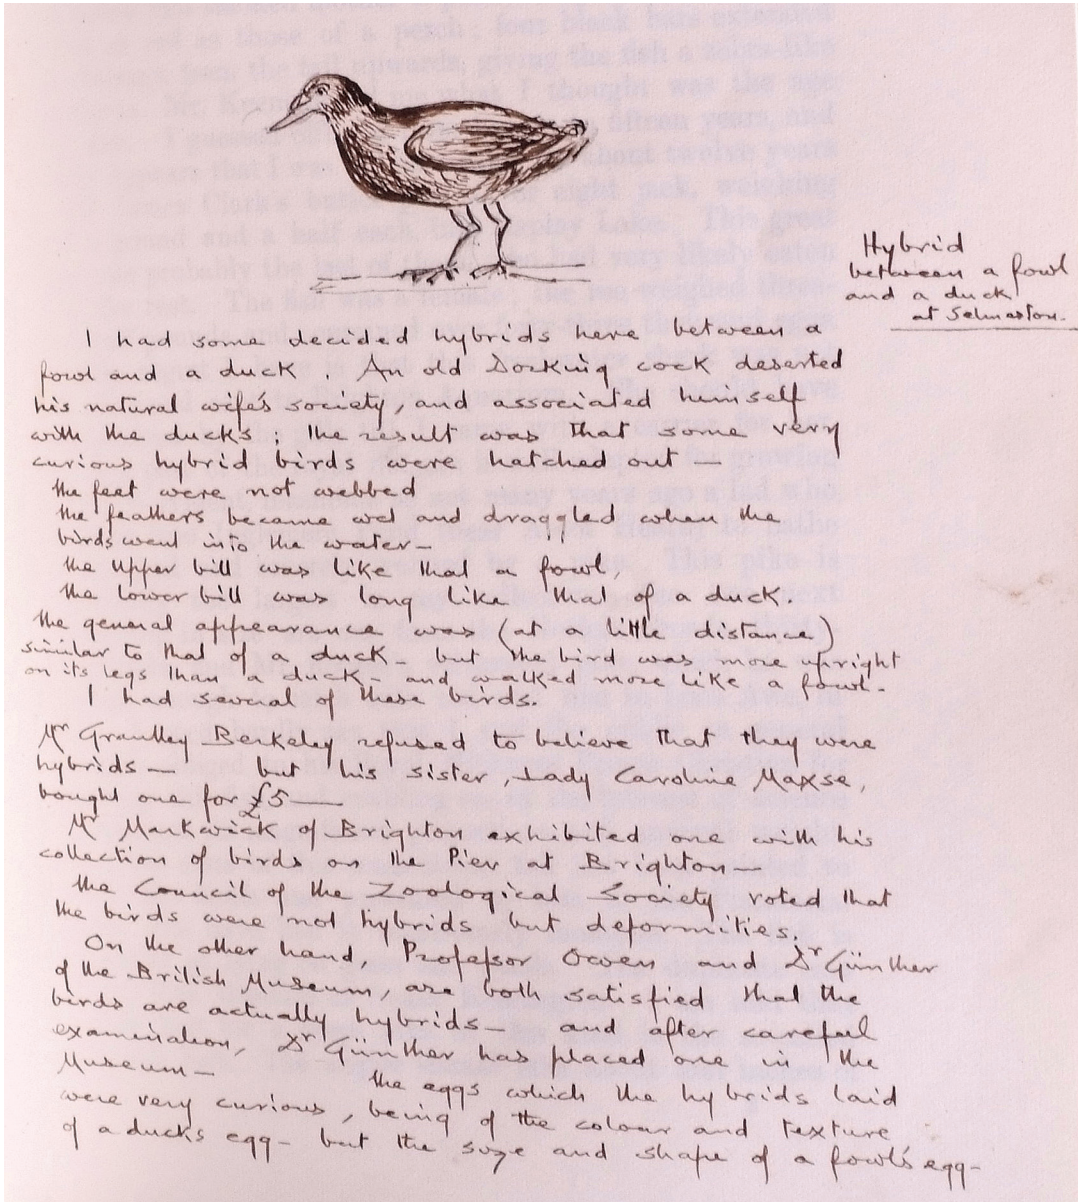 Hybrid
between a fowl
and a duck
at Selmeston.
I had some decided hybrids here between a
fowl and a duck. An old Dorking cock deserted
his natural wife's society, and associated himself
with the ducks; the result was that some very
curious hybrid birds were hatched out —
the feet were not webbed
the feathers became wet and draggled when the
birds went into the water —
the upper bill was like that a fowl,
the lower bill was long like that of a duck.
the general appearance was (at a little distance)
similar to that of a duck — but the bird was more upright
on its legs than a duck — and walked more like a fowl.
I had several of these birds.
Mr Grantley Berkeley refused to believe that they were
hybrids — but his sister, Lady Caroline Maxse,
bought one for £5
Mr Markwick of Brighton exhibited one with his
collection of birds on the Pier at Brighton —
the Council of the Zoological Society voted that
the birds were not hybrids but deformities.
On the other hand, Professor Owen and Dr Günther
of the British Museum, are both satisfied that the
birds are actually hybrids — and after careful
examination, Dr Günther has placed one in the
Museum — the eggs which the hybrids laid
were very curious, being of the colour and texture
of a ducks egg — but the size and shape of a fowl's egg —